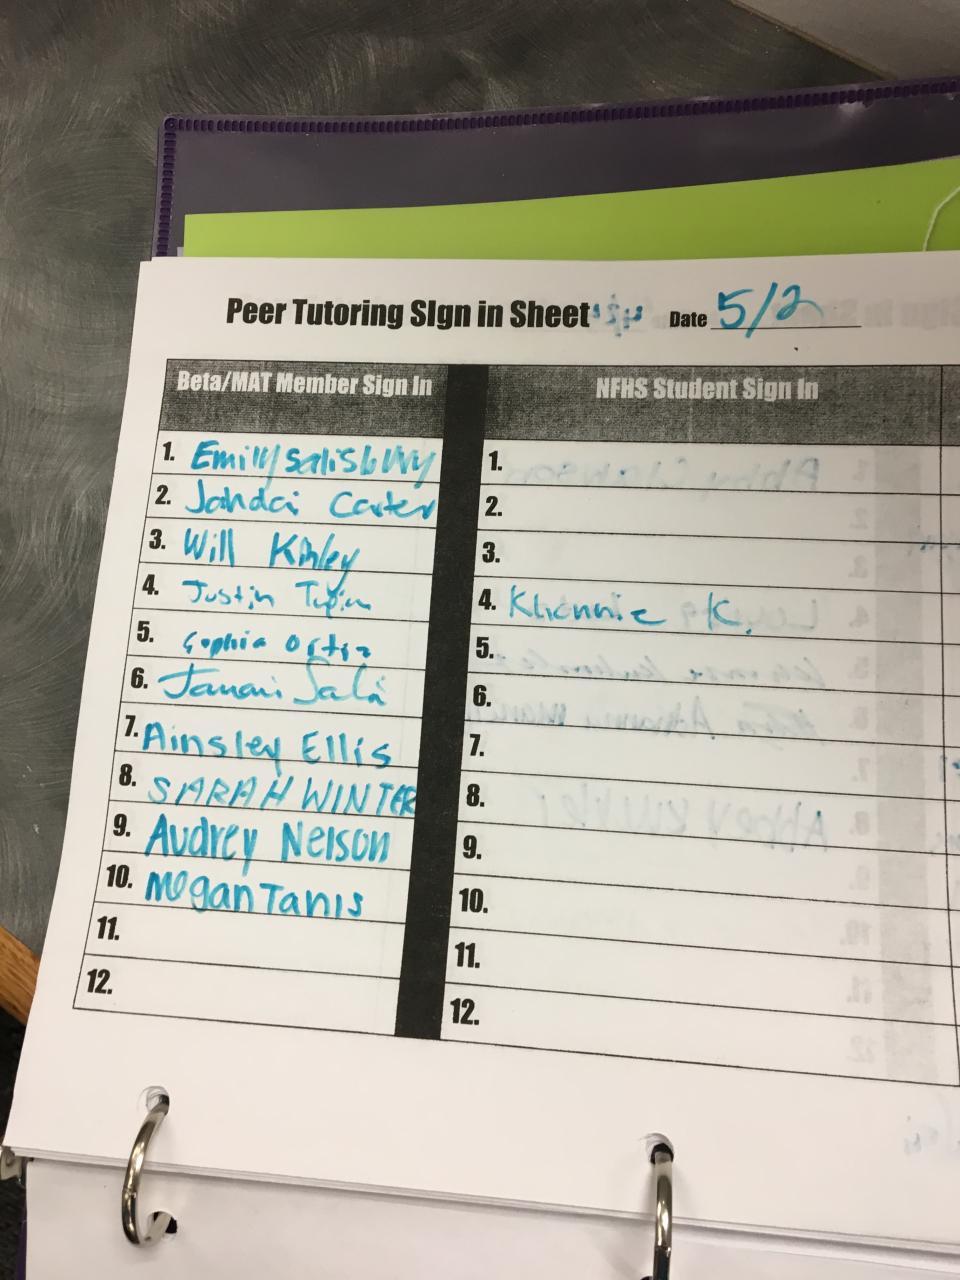 Peer Tutoring SIgn in Sheet Date 5/2
Beta/MAT Member Sign In NFHS Student Sign In
1. Emily Salisbury 1.
2. Jahdai Carter 2.
3. Will Kinley 3.
4. Justin 4. Khannie K.
5. Sophia Ortiz 5.
6. Janani Sala 6.
7. Ainsley Ellis 7.
8. SARAH WINTER 8.
9. Audrey Nelson 9.
10. Megan Tanis 10.
11. 11.
12. 12.